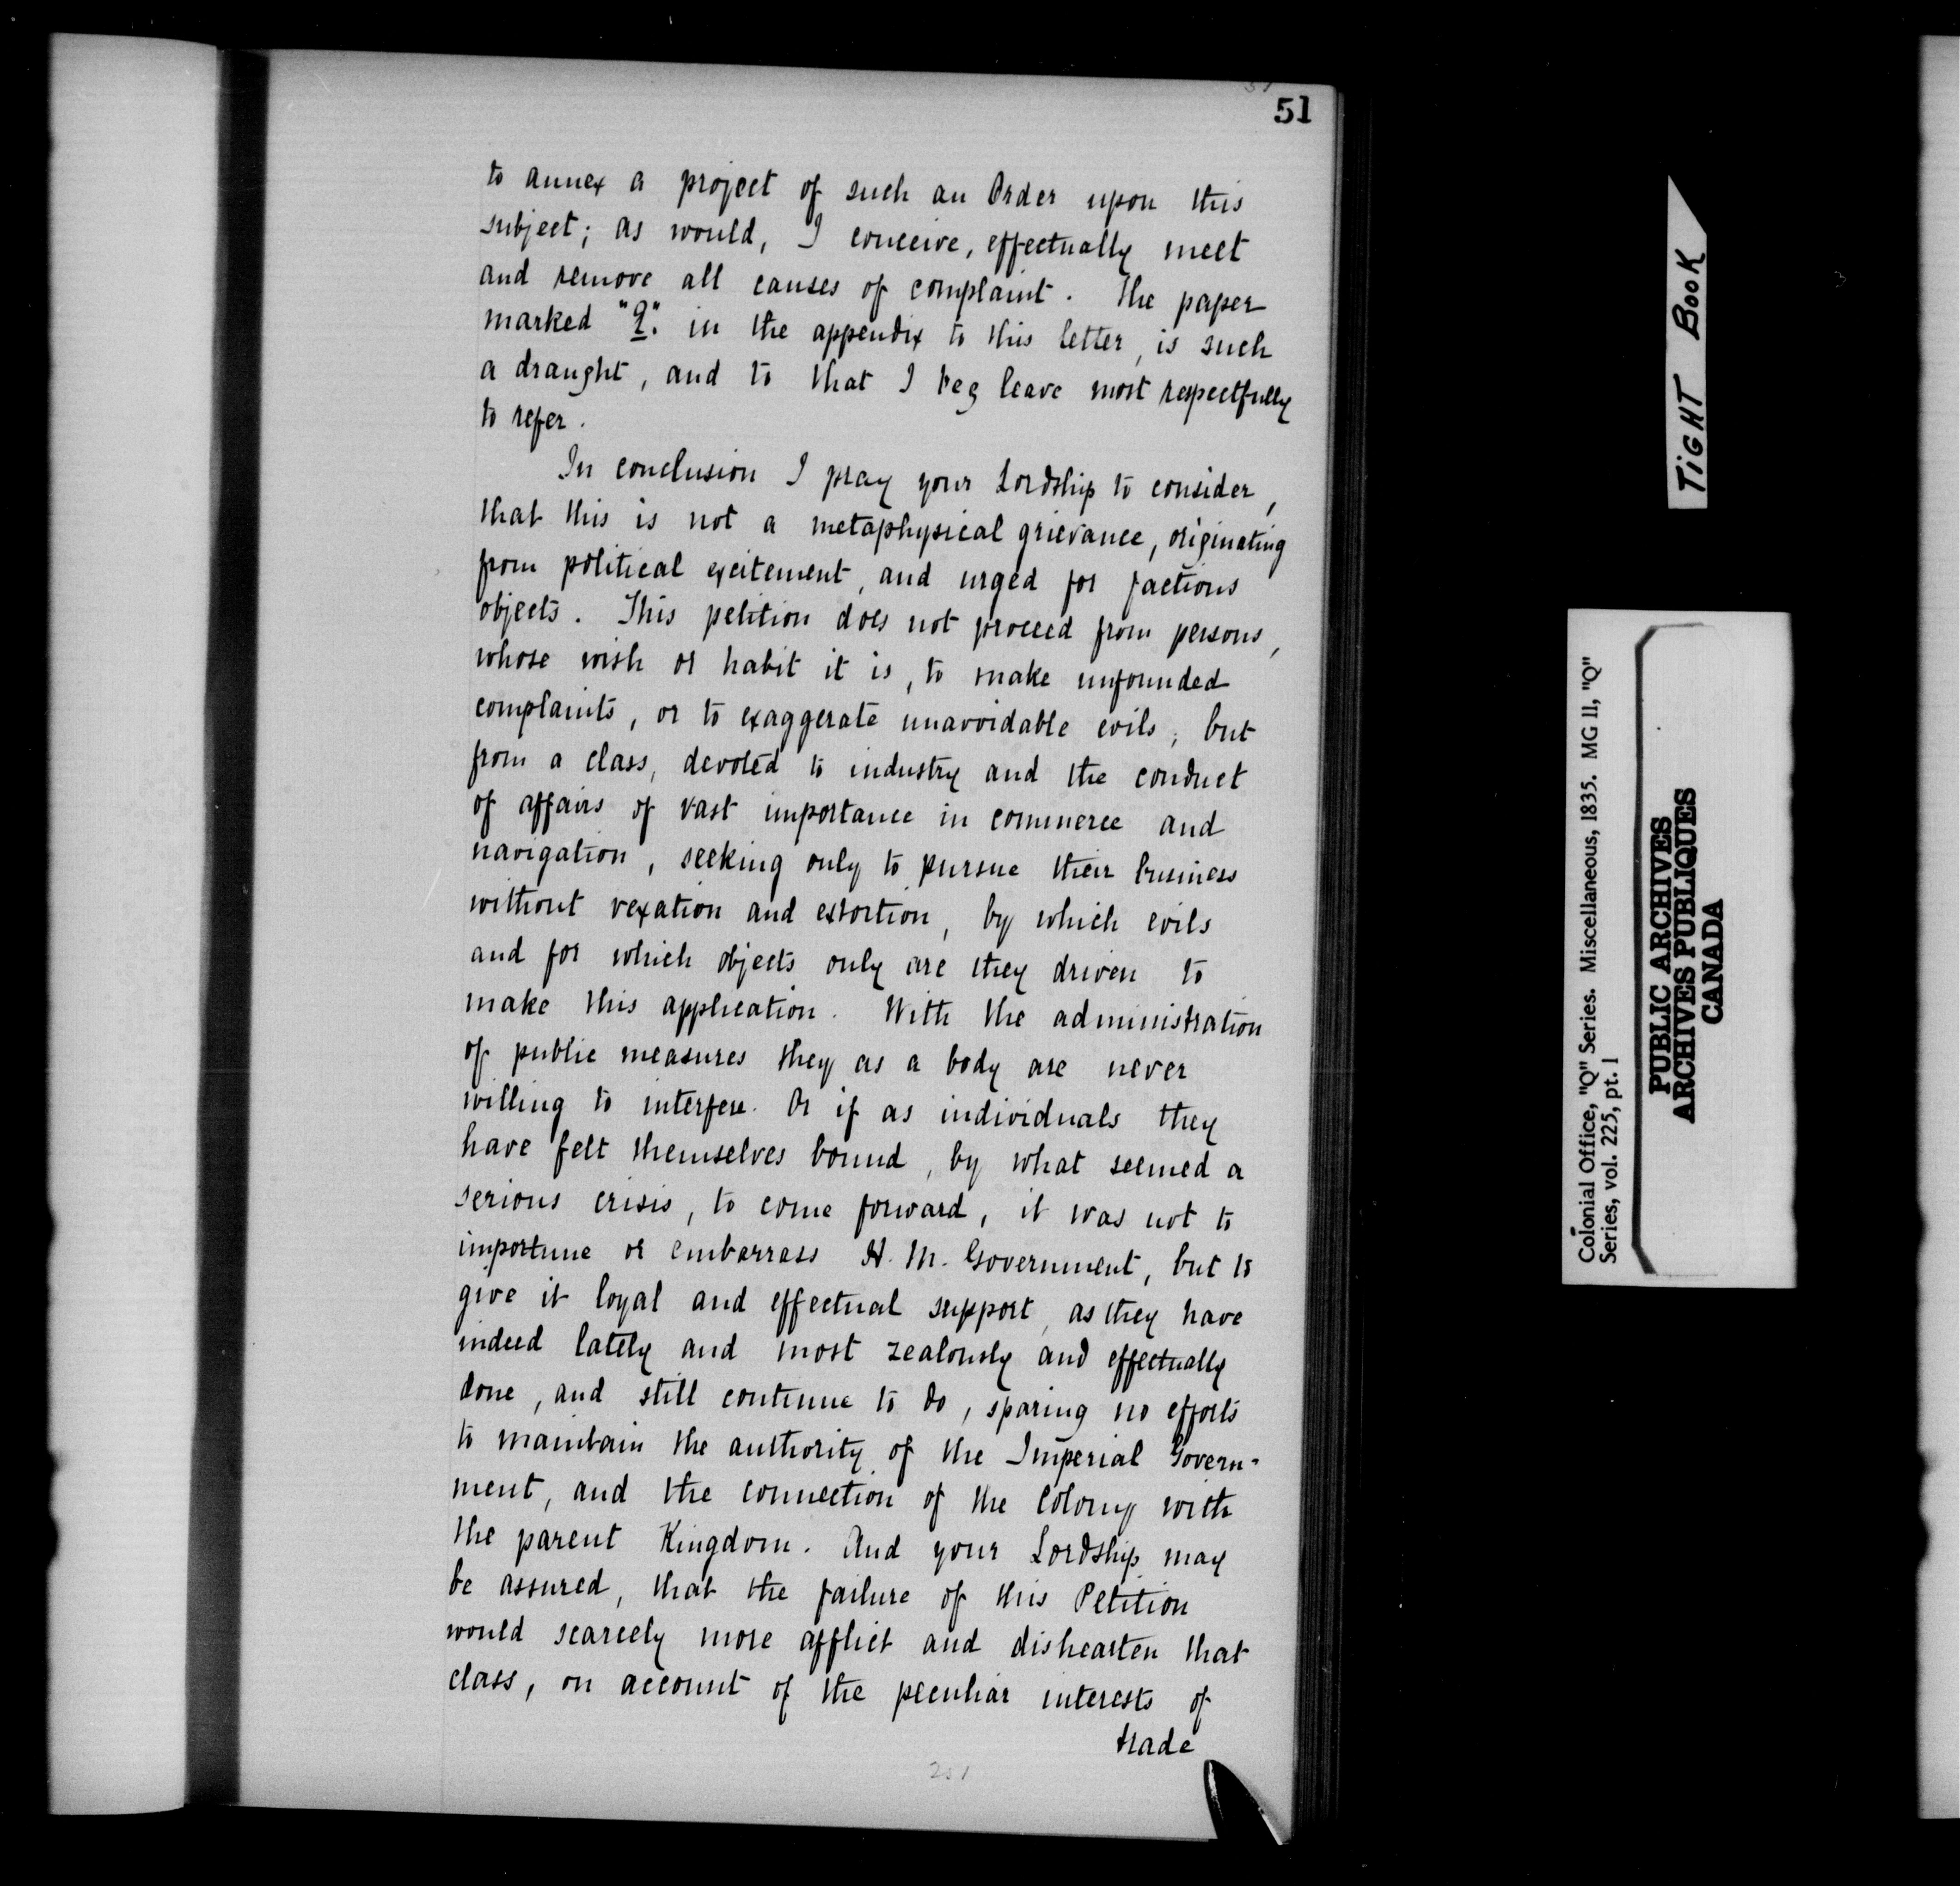 51
to annex a project of such an Order upon this
subject; as would, I conceive, effectually meet
and remove all causes of complaint. The paper
marked "Q". in the appendix to this letter, is such
a draught, and to that I beg leave most respectfully
to refer.
In conclusion I pray your Lordship to consider,
that this is not a metaphysical grievance, originating
from political excitement, and urged for factious
objects. This petition does not proceed from persons,
whose wish or habit it is, to make unfounded
complaints, or to exaggerate unavoidable evils; but
from a class, devoted to industry and the conduct
of affairs of vast importance in commerce and
navigation, seeking only to pursue their business
without vexation and extortion, by which evils
and for which objects only are they driven to
make this application. With the administration
of public measures they as a body are never
willing to interfere. Or if as individuals they
have felt themselves bound, by what seemed a
serious crisis, to come forward, it was not to
importune or embarrass H. M. Government, but to
give it loyal and effectual support, as they have
indeed lately and most zealously and effectually
done, and still continue to do, sparing no efforts
to maintain the authority of the Imperial Govern-
ment, and the connection of the Colony with
the parent Kingdom. And your Lordship may
be assured, that the failure of this Petition
would scarcely more afflict and dishearten that
class, on account of the peculiar interests of
trade
TIGHT BOOK
Colonial Office, "Q" Series. Miscellaneous, 1835. MG 11, "Q"
Series, vol. 225, pt. 1
PUBLIC ARCHIVES
ARCHIVES PUBLIQUES
CANADA